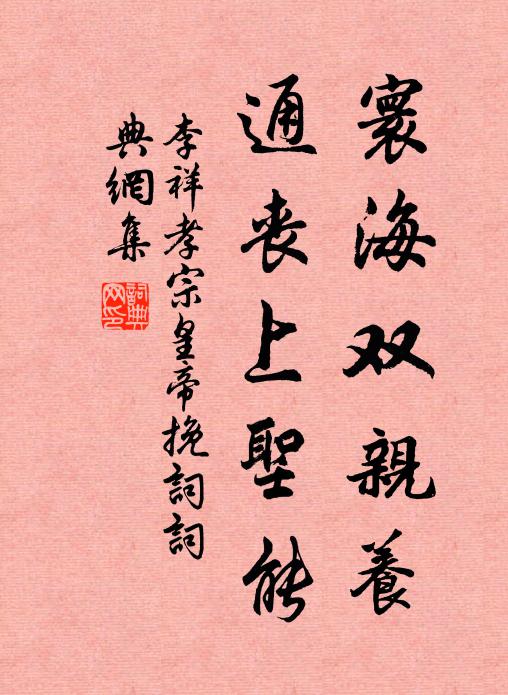 寰海双親養
通丧上聖能
李祥孝宗皇帝挽詞詞
典網集
詞典网印